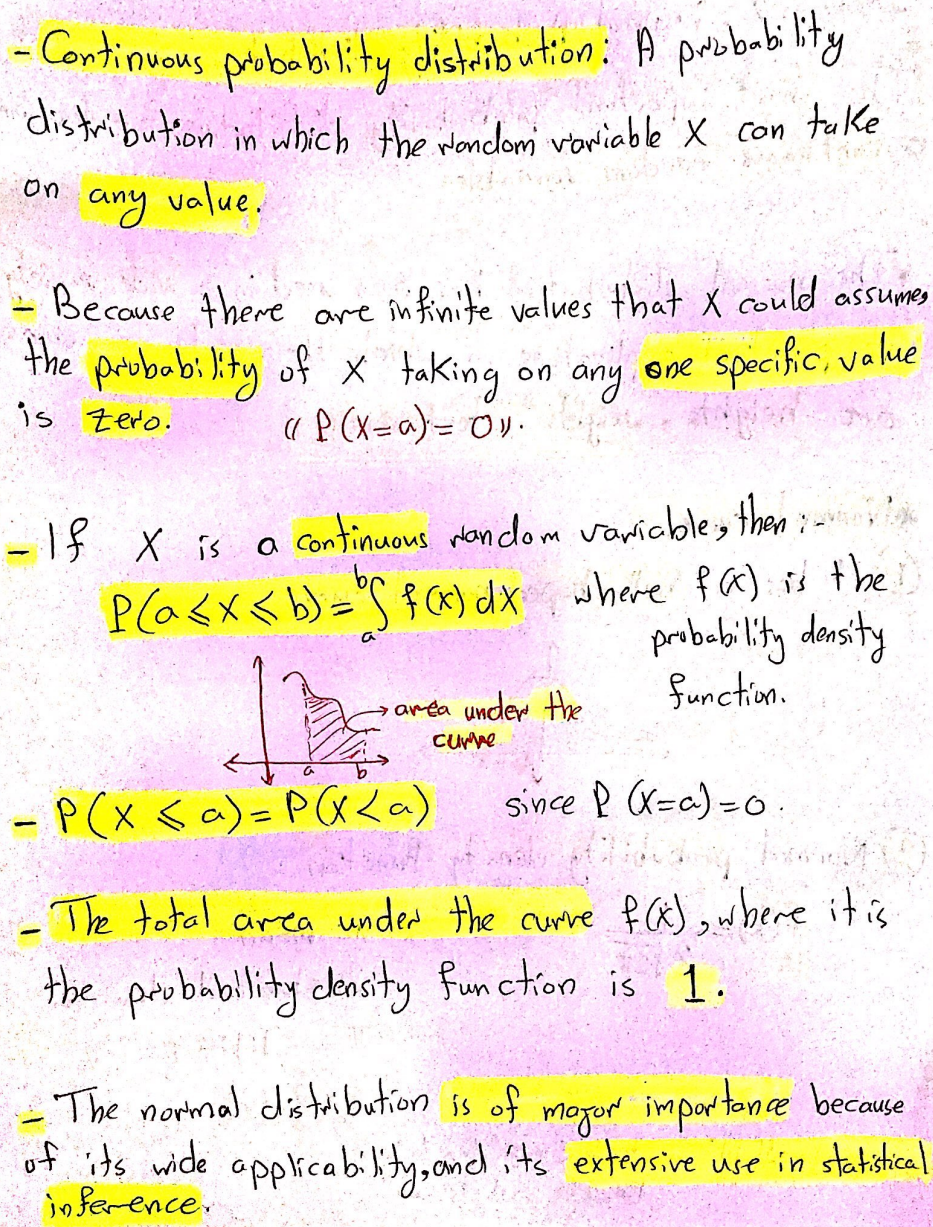 - Continuous probability distribution: A probability
distribution in which the random variable X can take
on any value.
- Because there are infinite values that X could assume,
the probability of X taking on any one specific value
is zero. « P(X=a) = 0 ».
- If X is a continuous random variable, then :-
P(a≤X≤b) = ᵇ∫ₐ f(x) dx where f(x) is the
probability density
function.
area under the
curve
a b
- P(X ≤ a) = P(X < a) since P (X=a) = 0 .
- The total area under the curve f(x), where it is
the probability density function is 1.
- The normal distribution is of major importance because
of its wide applicability, and its extensive use in statistical
inference.